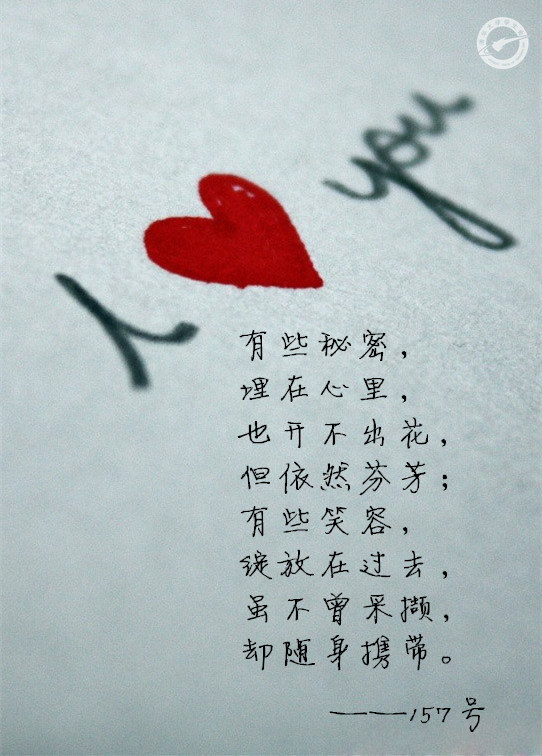 I ❤ you
有些秘密，
埋在心里，
也开不出花，
但依然芬芳；
有些笑容，
绽放在过去，
虽不曾采撷，
却随身携带。
——157号